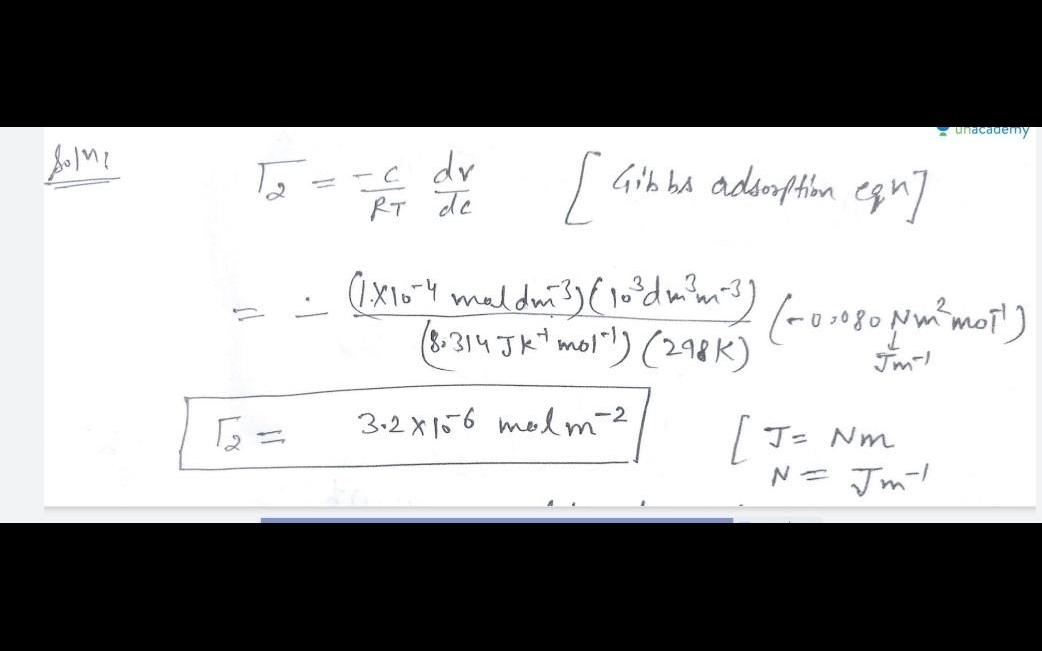 unacademy
Soln:
Γ₂ = -c/RT dγ/dc [Gibbs adsorption eqn]
= - (1.×10⁻⁴ mol dm⁻³)(10³dm³m⁻³)/(8.314 JK⁻¹ mol⁻¹)(298K) (-0.080 Nm²mol⁻¹)
↓
Jm⁻¹
Γ₂ = 3.2×10⁻⁶ mol m⁻² [J= Nm
N = Jm⁻¹